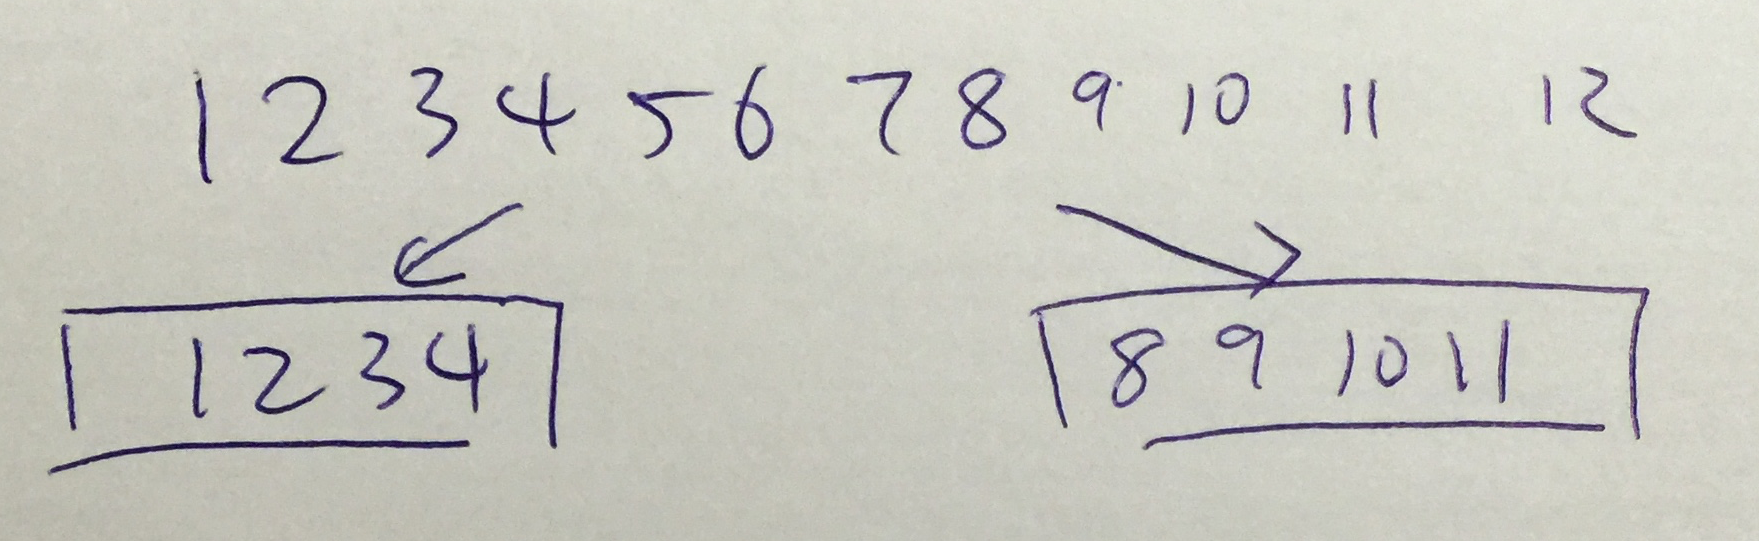 1 2 3 4 5 6 7 8 9 10 11 12
1 2 3 4
8 9 10 11